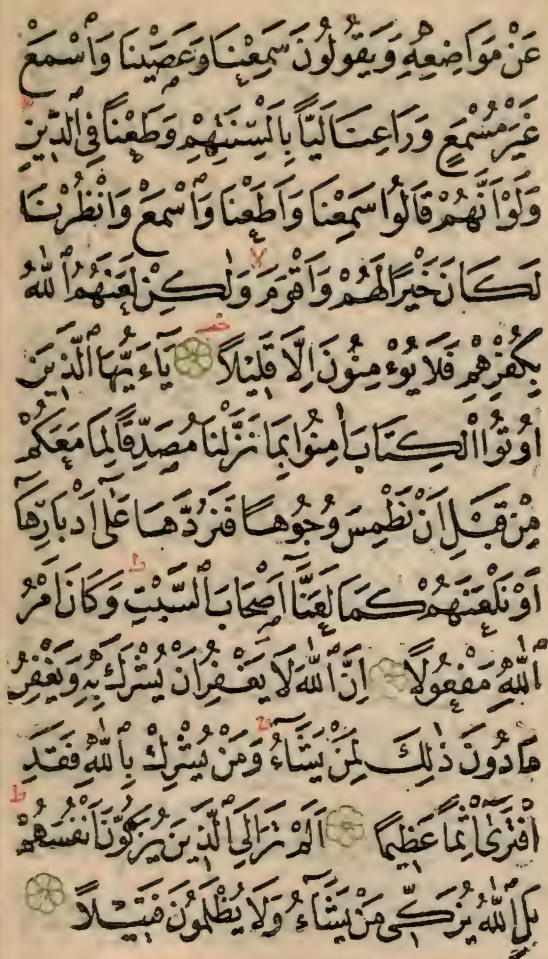 عَنْ مَوَاضِعِهِ وَيَقُولُونَ سَمِعْنَا وَعَصَيْنَا وَاسْمَعْ
غَيْرَ مُسْمَعٍ وَرَاعِنَا لَيًّا بِاَلْسِنَتِهِمْ وَطَعْنًا فِي الدِّينِ
وَلَوْ اَنَّهُمْ قَالُوا سَمِعْنَا وَاَطَعْنَا وَاسْمَعْ وَانْظُرْنَا
لَكَانَ خَيْرًا لَهُمْ وَاَقْوَمَ وَلٰكِنْ لَعَنَهُمُ اللّٰهُ
بِكُفْرِهِمْ فَلَا يُؤْمِنُونَ اِلَّا قَلِيلًا يَآءَيُّهَا الَّذِينَ
اُوتُوا الْكِتَابَ اٰمِنُوا بِمَا نَزَّلْنَا مُصَدِّقًا لِمَا مَعَكُمْ
مِنْ قَبْلِ اَنْ نَطْمِسَ وُجُوهًا فَنَرُدَّهَا عَلٰٓى اَدْبَارِهَٓا
اَوْ نَلْعَنَهُمْ كَمَا لَعَنَّٓا اَصْحَابَ السَّبْتِ وَكَانَ اَمْرُ
اللّٰهِ مَفْعُولًا اِنَّ اللّٰهَ لَا يَغْفِرُ اَنْ يُشْرَكَ بِهِ وَيَغْفِرُ
مَا دُونَ ذٰلِكَ لِمَنْ يَشَٓاءُ وَمَنْ يُشْرِكْ بِاللّٰهِ فَقَدِ
افْتَرٰٓى اِثْمًا عَظِيمًا اَلَمْ تَرَ اِلَى الَّذِينَ يُزَكُّونَ اَنْفُسَهُمْ
بَلِ اللّٰهُ يُزَكِّي مَنْ يَشَٓاءُ وَلَا يُظْلَمُونَ فَتِيلًا